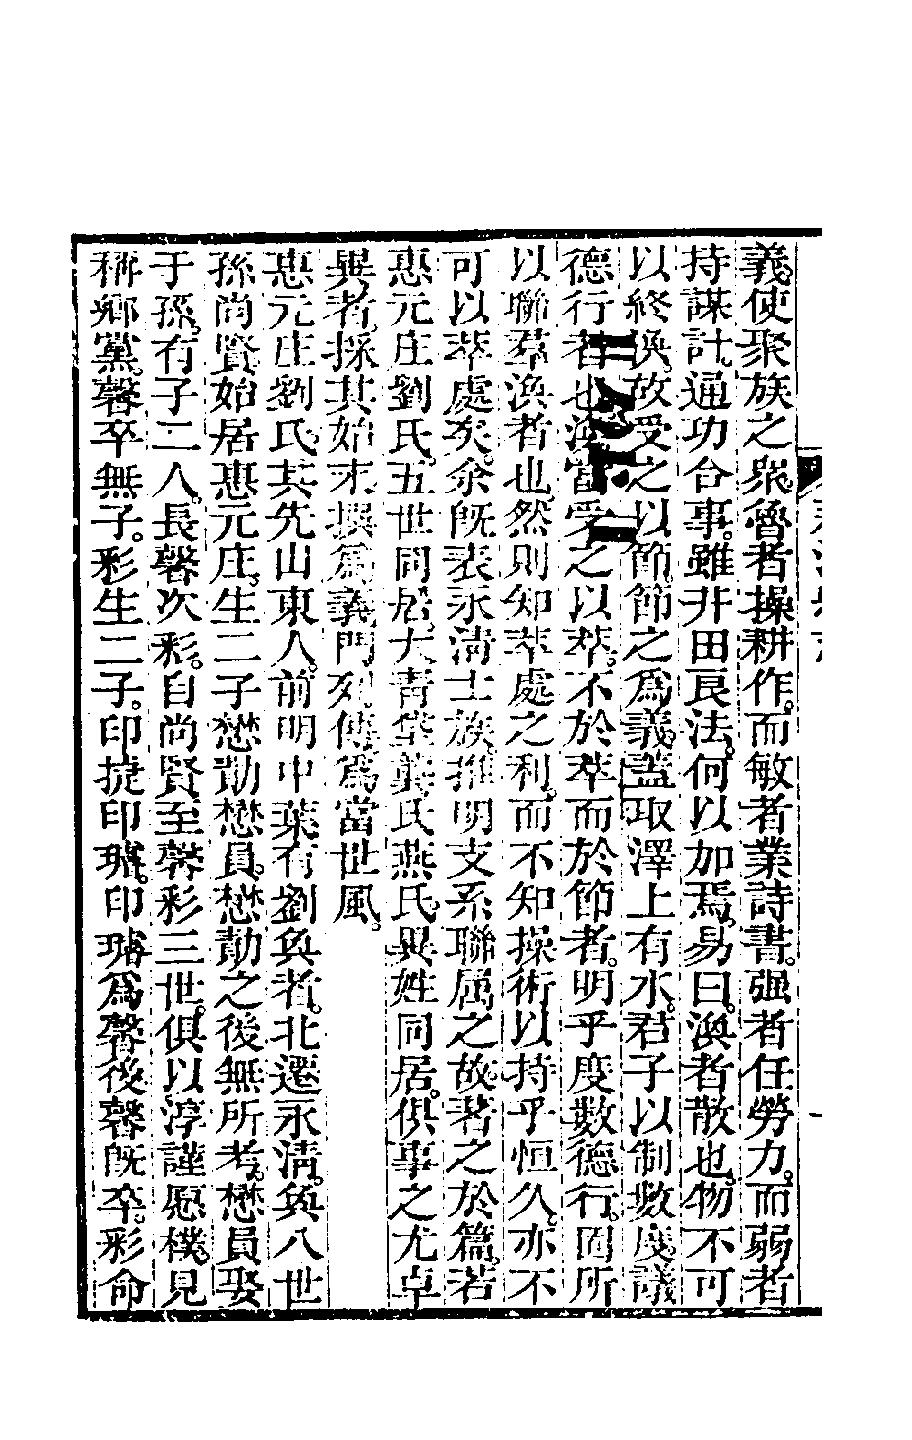 義。使聚族之衆。魯者操耕作。而敏者業詩書。强者任勞力。而弱者
持謀計。通功合事。雖井田良法。何以加焉。易曰。渙者散也。物不可
以終渙。故受之以節。節之爲義。蓋取澤上有水。君子以制數度。議
德行者也。渙當受之以萃。不於萃而於節者。明乎度數德行。固所
以聯羣渙者也。然則知萃處之利。而不知操術以持乎恒久。亦不
可以萃處矣。余旣表永淸士族。推明支系聯属之故。著之於篇。若
惠元庄劉氏。五世同居。大靑垡龔氏燕氏。異姓同居。俱事之尤卓
異者。採其始末。撰爲義門列傳。爲當世風。
惠元庄劉氏。其先山東人。前明中葉有劉奐者。北遷永淸。奐八世
孫尚賢始居惠元庄。生二子懋勣懋員。懋勣之後無所考。懋員娶
于孫。有子二人。長馨次彩。自尚賢至馨彩三世。俱以淳謹愿樸。見
稱鄉黨。馨卒無子。彩生二子。印捷印璸。印璸爲馨後。馨旣卒。彩命